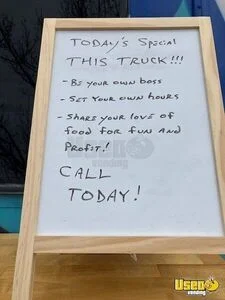 TODAY'S SPECIAL
THIS TRUCK!!!
- BE YOUR OWN BOSS
- SET YOUR OWN HOURS
- SHARE YOUR LOVE OF
FOOD FOR FUN AND
PROFIT!
CALL
TODAY!
USED
vending